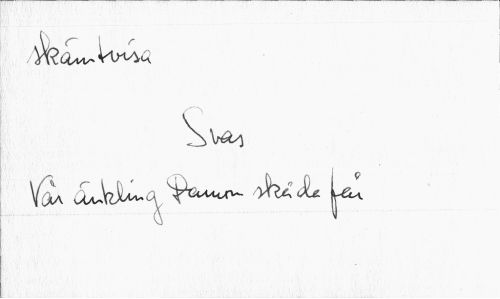 skämtvisa
Svar
Vår änkling Damon skåda får